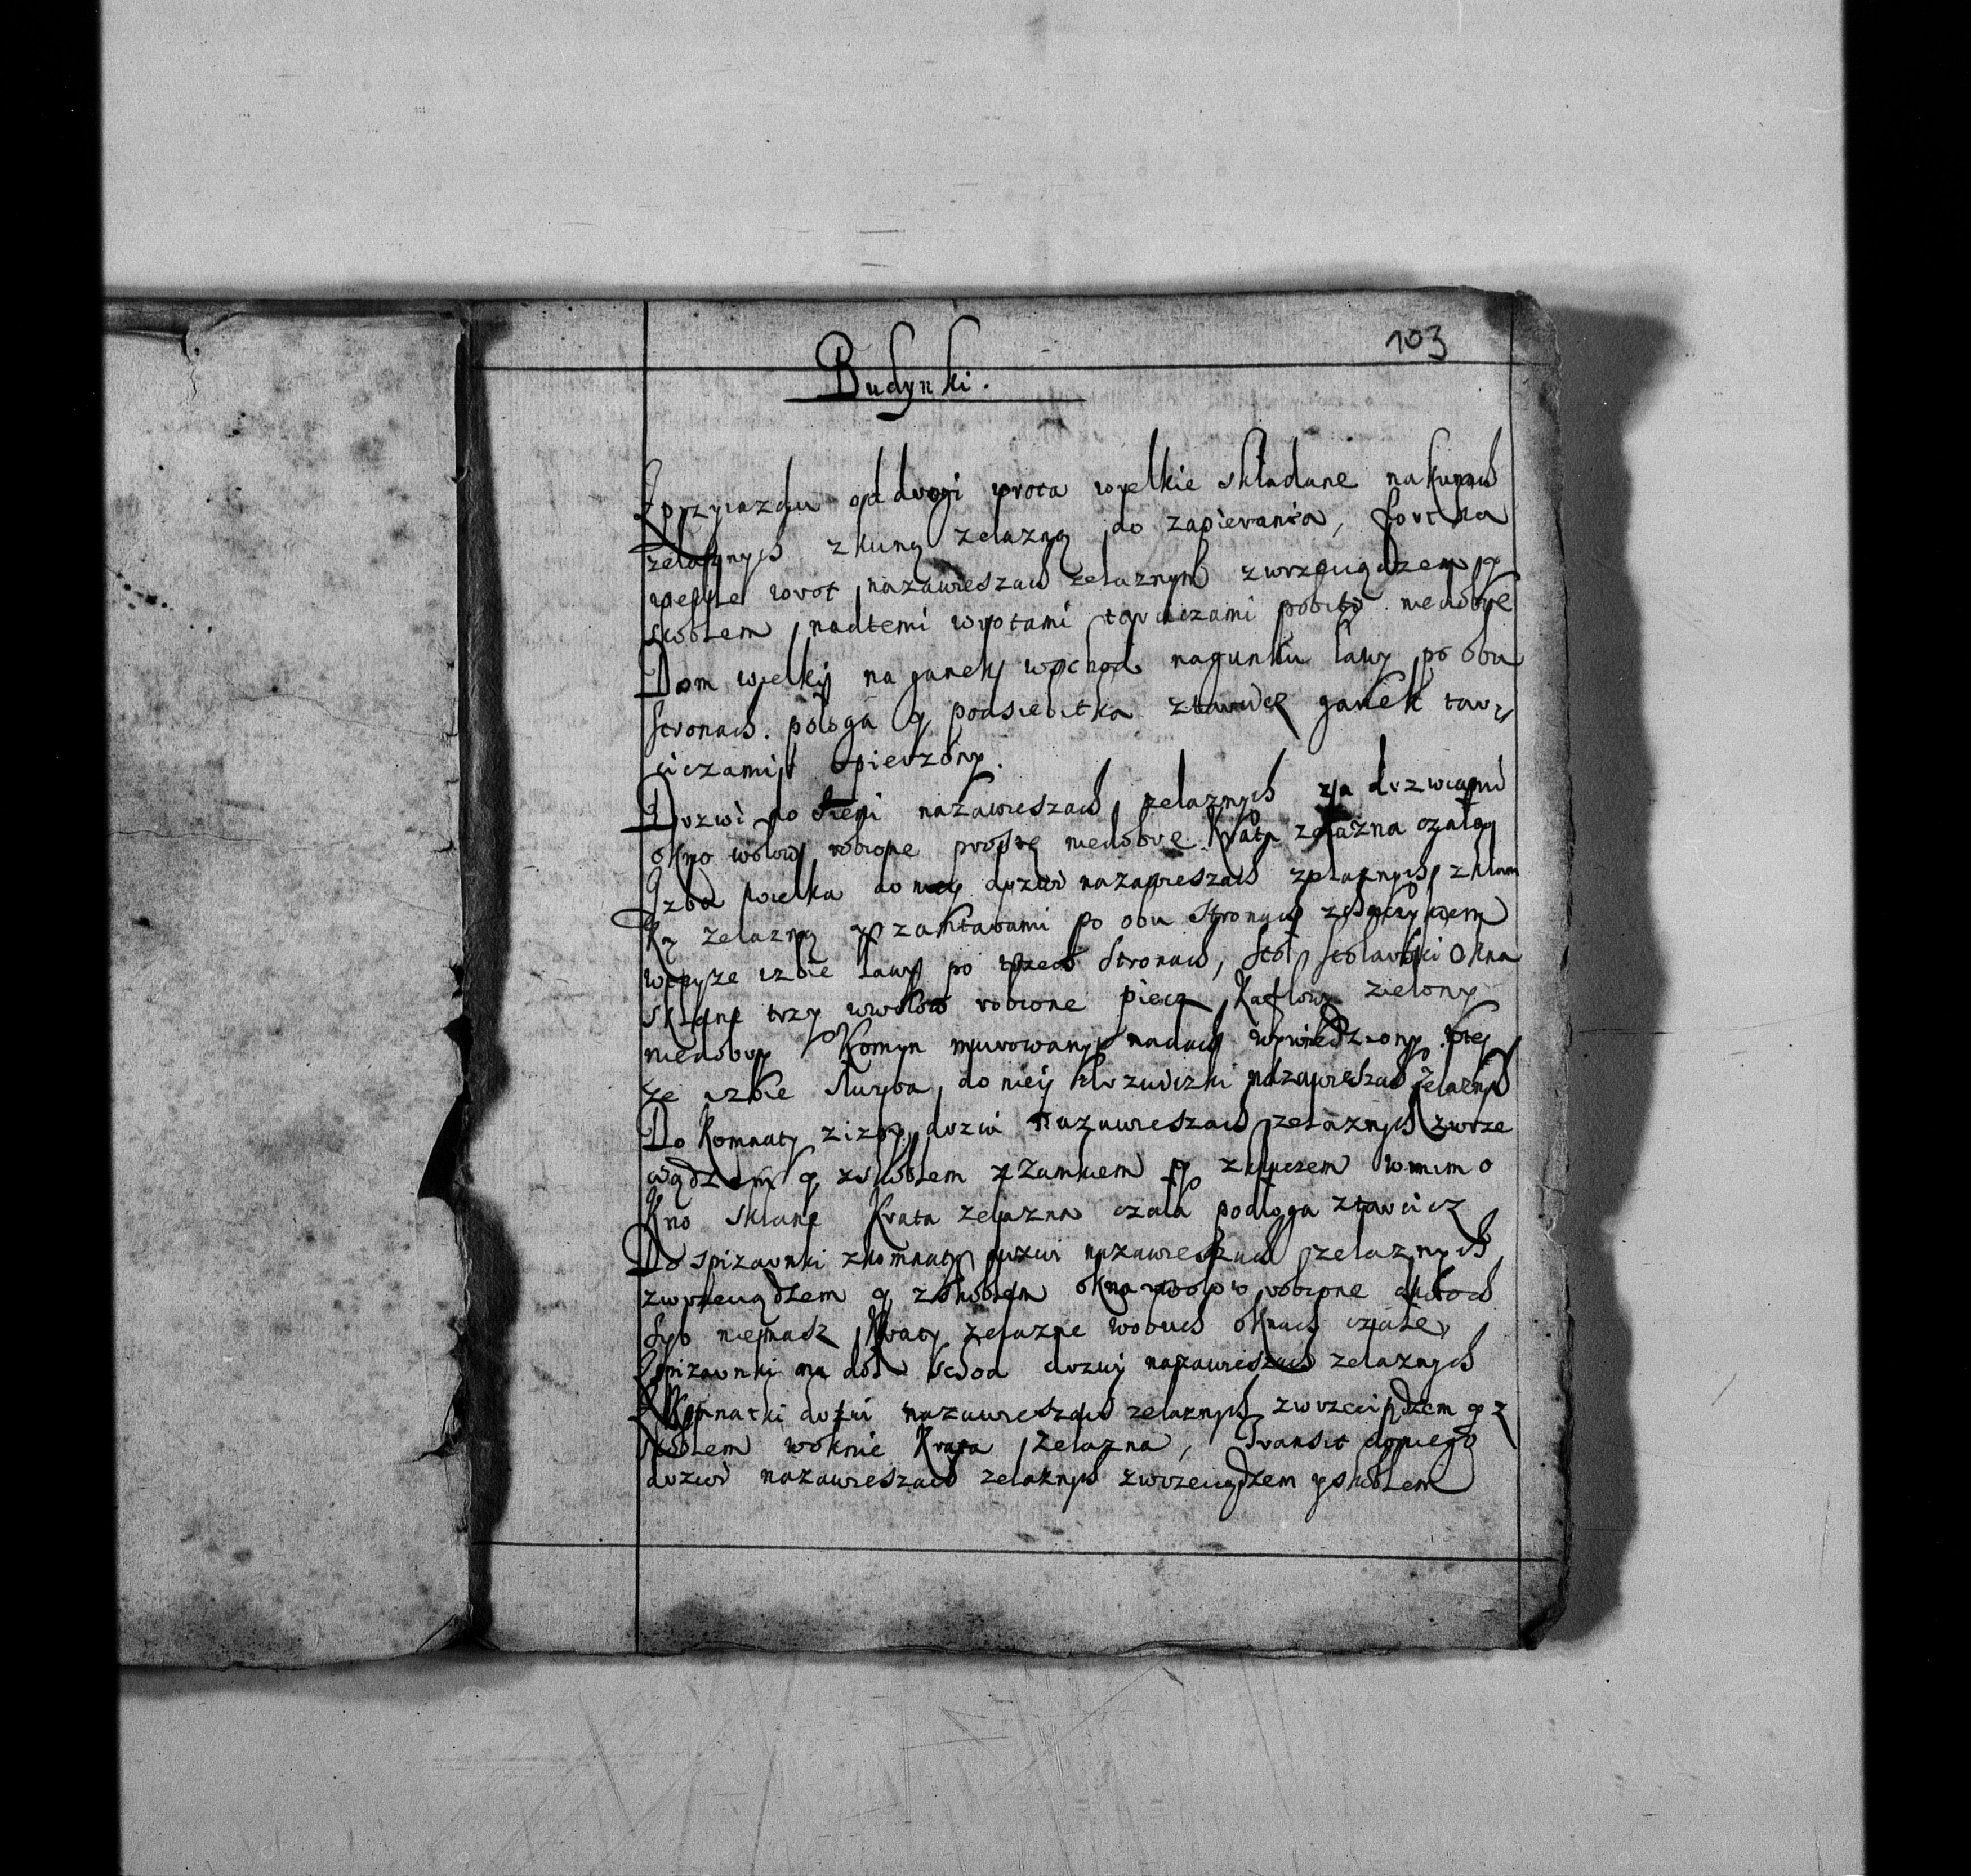 103
Budynki.
Zprzyiazdu od drogi wrota wyelkie składane nakunach
zelaznych zkuną zelazną do zapierania, fortka
wesyle wrot nazawieszach zelaznych zwrzeciądzem y
skoblem, nadtemi wrotami tarciczami pobito niedobrze
Dom wyelkij na ganek wschod naganku ławy po obu
stronach. pologa y podsiebitka ztarcic ganek tar
ciczami opierzony.
Drzwi do sieni nazawieszach zelaznych za drzwiami
okno wołow robione proste niedobre Krata zelazna czała
Izba wielka do niey drzwi nazawieszach zelaznych, zklam
ką zelazną y zantabami po obu stronach
wteyze izbie ławy po trzech stronach, stoł stolarski Okna
sklane trzy wwołow robione piecz Kaflowy zielony
niedobry Komyn murowany nadach wywiedziony wtey
ze izbie służba, do niey drzwiczki nazawieszach zelaznych
Do Komnaty zizby drzwi nazawieszach zelaznych zwrze
ciądzem y zskoblem zZamkiem y zkluczem wnim o
kno sklane Krata zelazna czała podłoga ztarcicz
Do spizarnki zkomnaty drzwi nazawieszach zelaznych
zwrzeciądzem y zskoblem okna wołow robione
syb niemasz Kraty zelazne wobuch oknach czałe,
Zpizarnki na doł wschod drzwi nazawieszach zelaznych
ZKomnatki drzwi nazawieszach zelaznych zwrzeciądzem y z
skoblem woknie Krata zelazna, Transit doniego
drzwi nazawieszach zelaznych zwrzeciądzem y skoblem